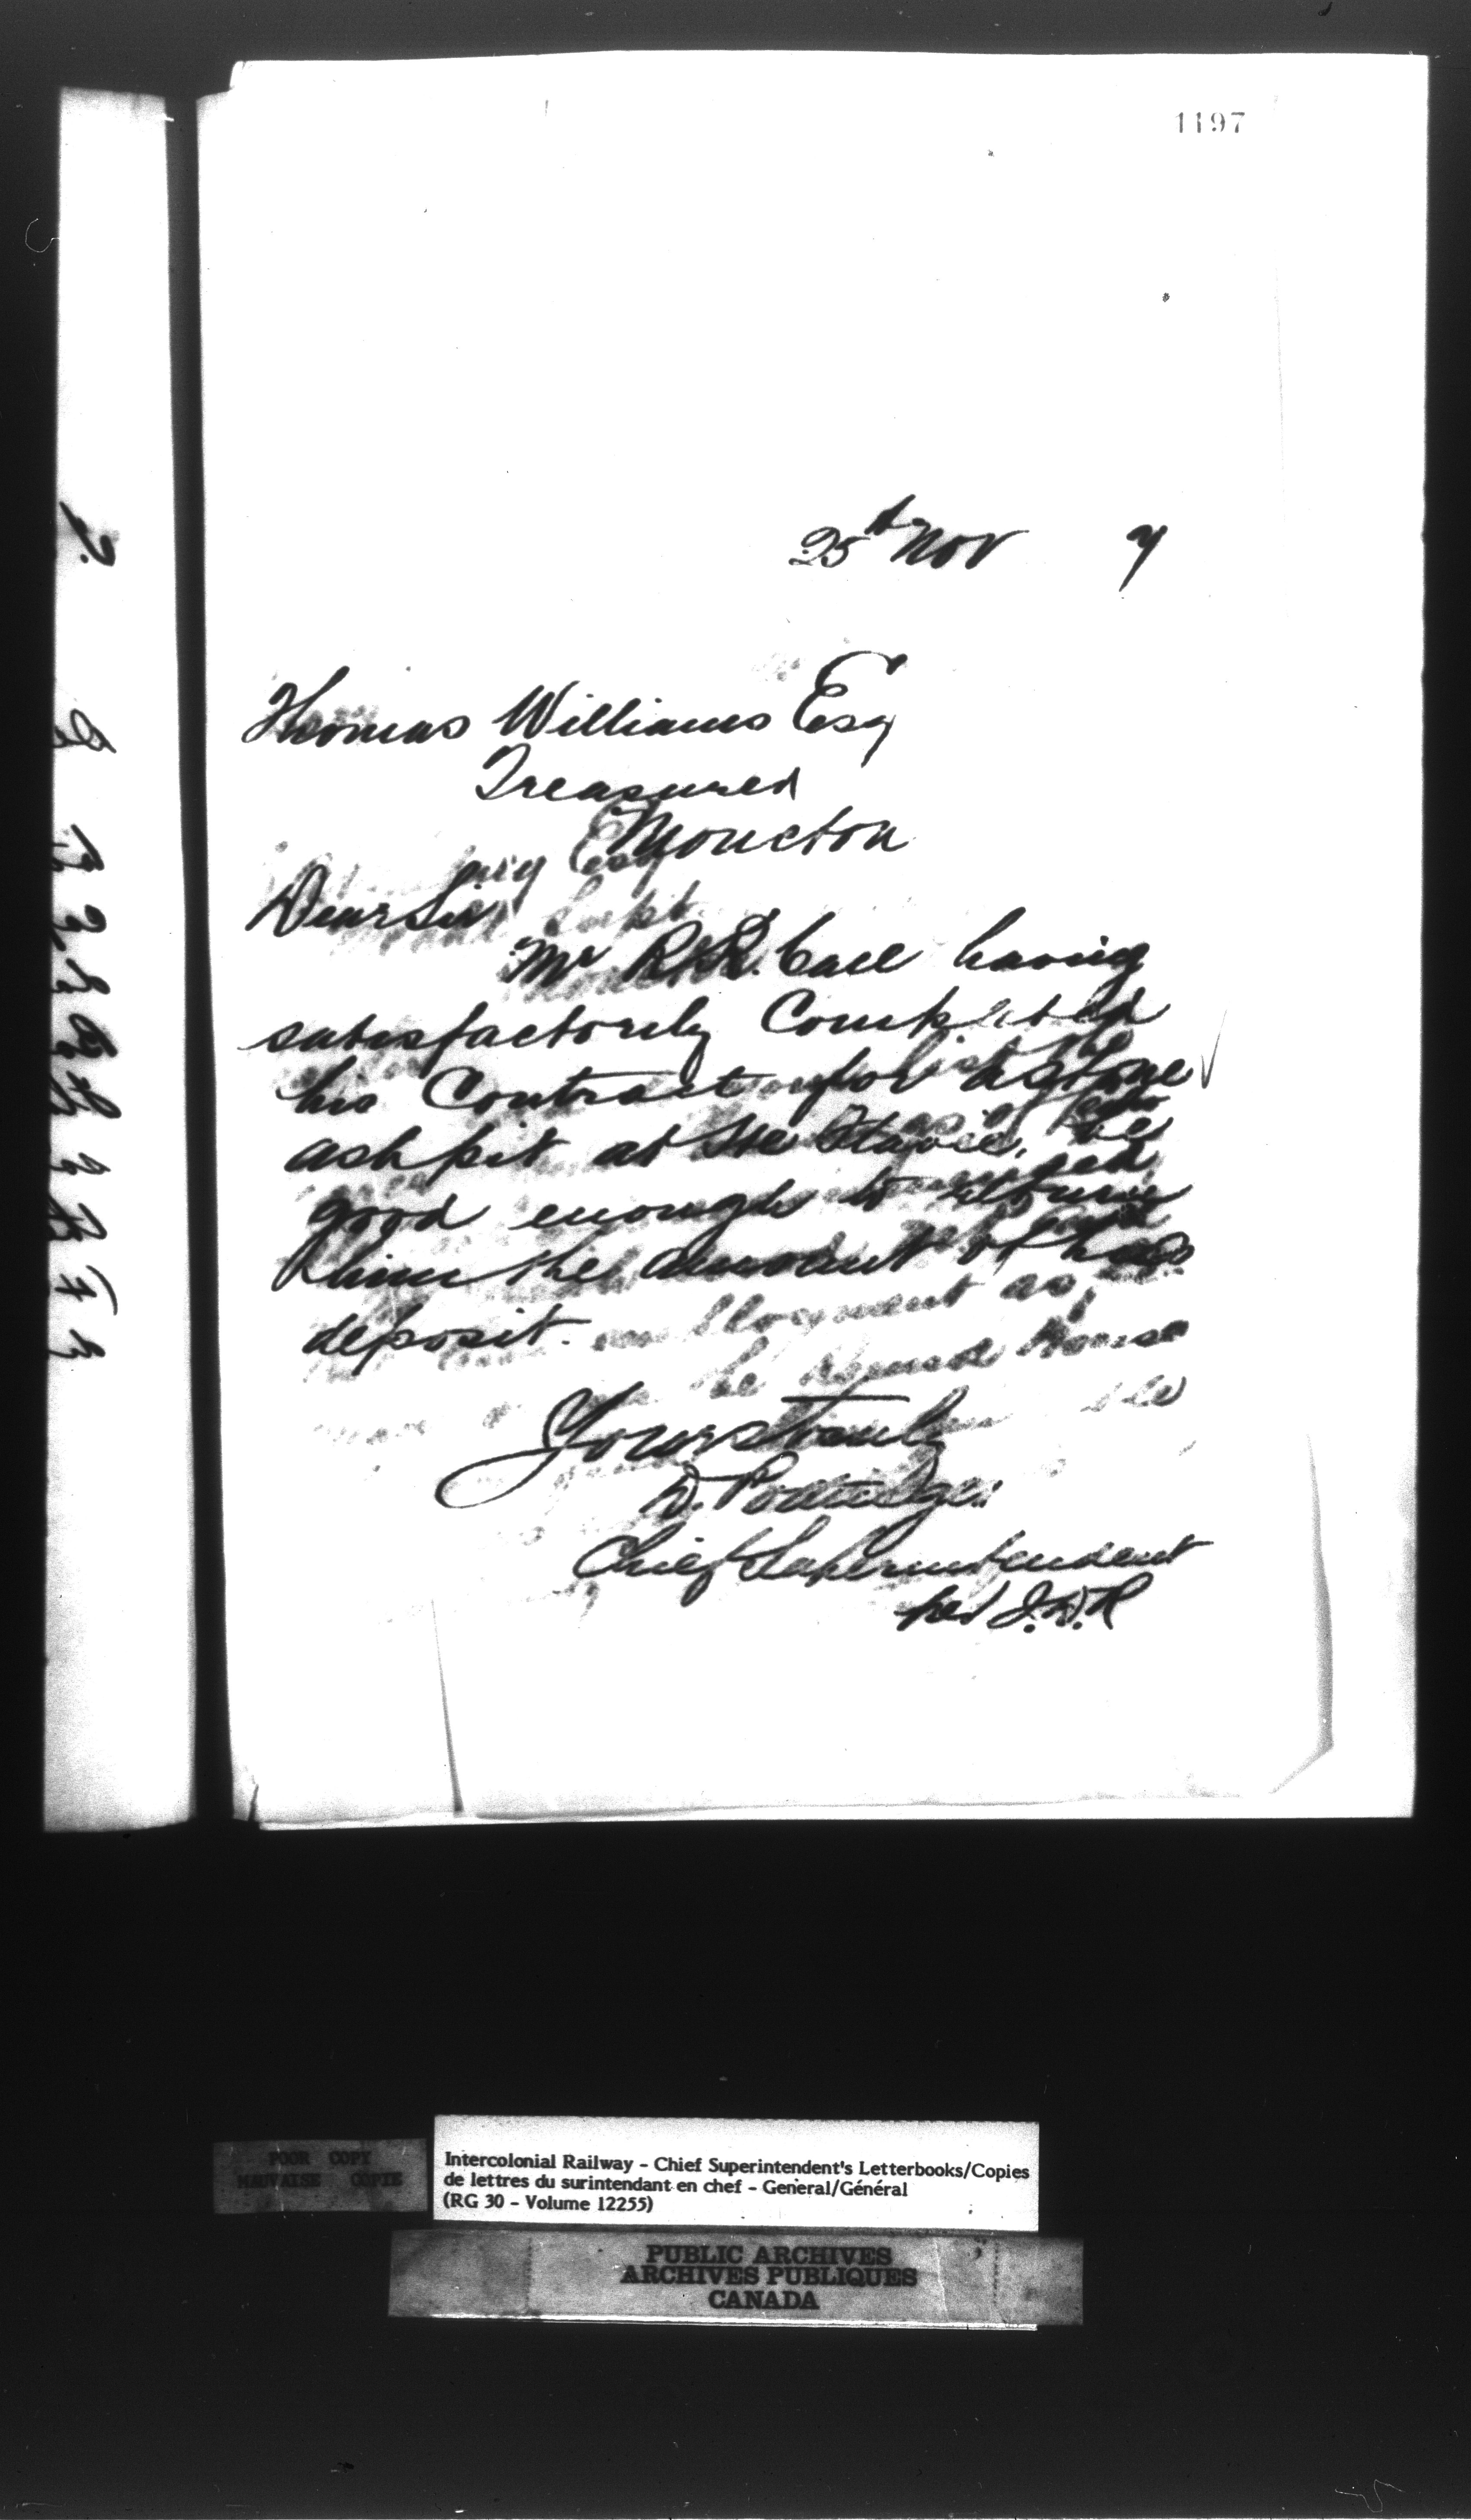 1197
25th Nov 7
Thomas Williams Esq
Treasurer
Moncton
Dear Sir
Mr R.R. Call having
satisfactorily Completed
his Contract for a stone
ash pit at Ste Flavie, be
good enough to return
him the amount of his
deposit.
Yours truly
D. Pottinger
Chief Superintendent
per J.W.R
POOR COPY
MAUVAISE COPIE
Intercolonial Railway - Chief Superintendent's Letterbooks/Copies
de lettres du surintendant en chef - General/Général
(RG 30 - Volume 12255)
PUBLIC ARCHIVES
ARCHIVES PUBLIQUES
CANADA